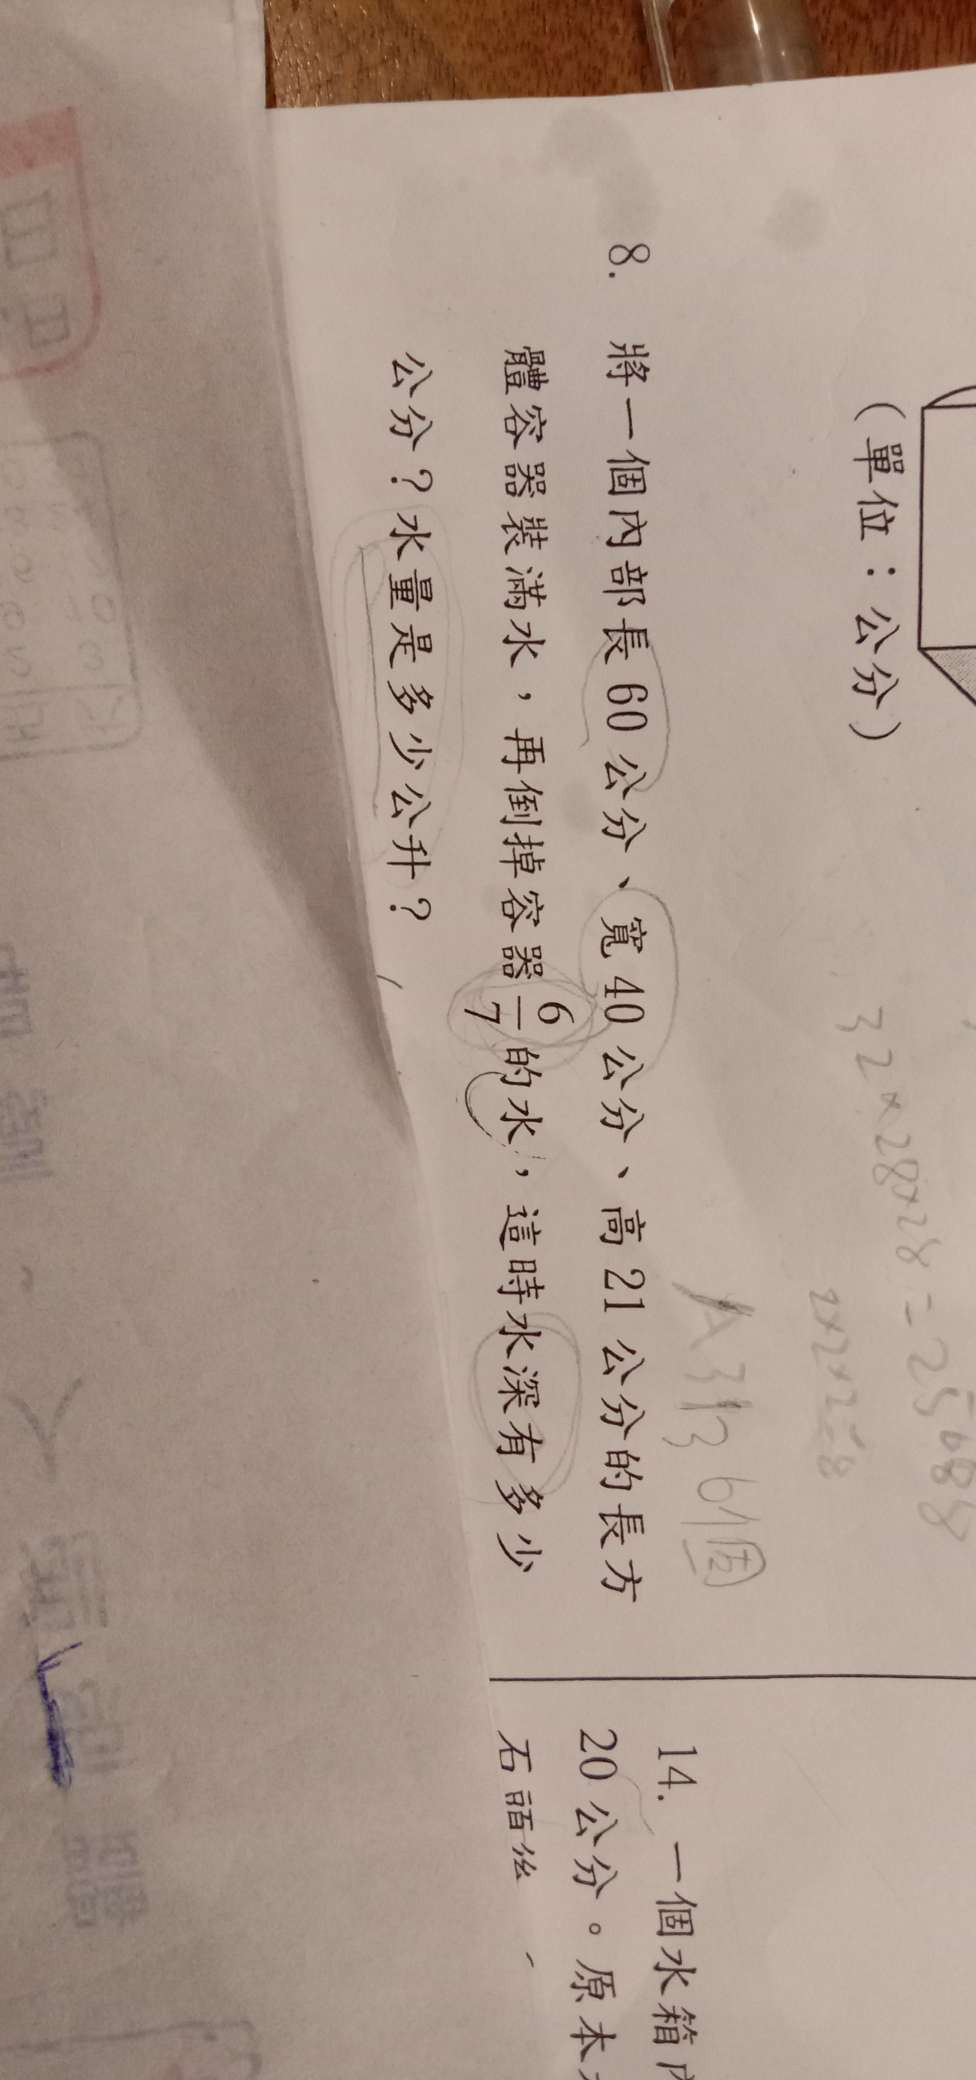 （單位：公分）
32×28×28=25088
2×2×2=8
A 3136個
8. 將一個內部長60公分、寬40公分、高21公分的長方
體容器裝滿水，再倒掉容器6/7的水，這時水深有多少
公分？水量是多少公升？
14. 一個水箱內
20公分。原本
石頭後